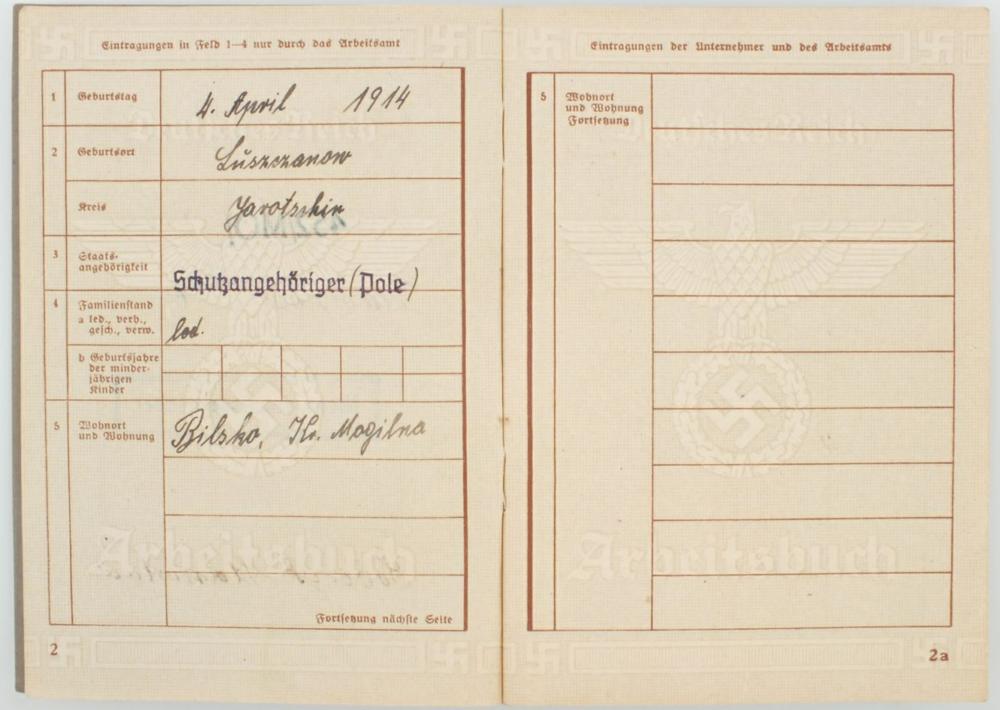 Eintragungen in Feld 1—4 nur durch das Arbeitsamt
1 Geburtstag 4. April 1914
2 Geburtsort Luszczanow
Kreis Jarotschin
3 Staats-
angehörigkeit Schutzangehöriger (Pole)
4 Familienstand
a led., verh.,
gesch., verw. led.
b Geburtsjahre
der minder-
jährigen
Kinder
5 Wohnort
und Wohnung Bilsko, Kr. Mogilna
Fortsetzung nächste Seite
2
Eintragungen der Unternehmer und des Arbeitsamts
5 Wohnort
und Wohnung
Fortsetzung
2a
Deutsches Reich
Arbeitsbuch
Deutsches Reich
Arbeitsbuch